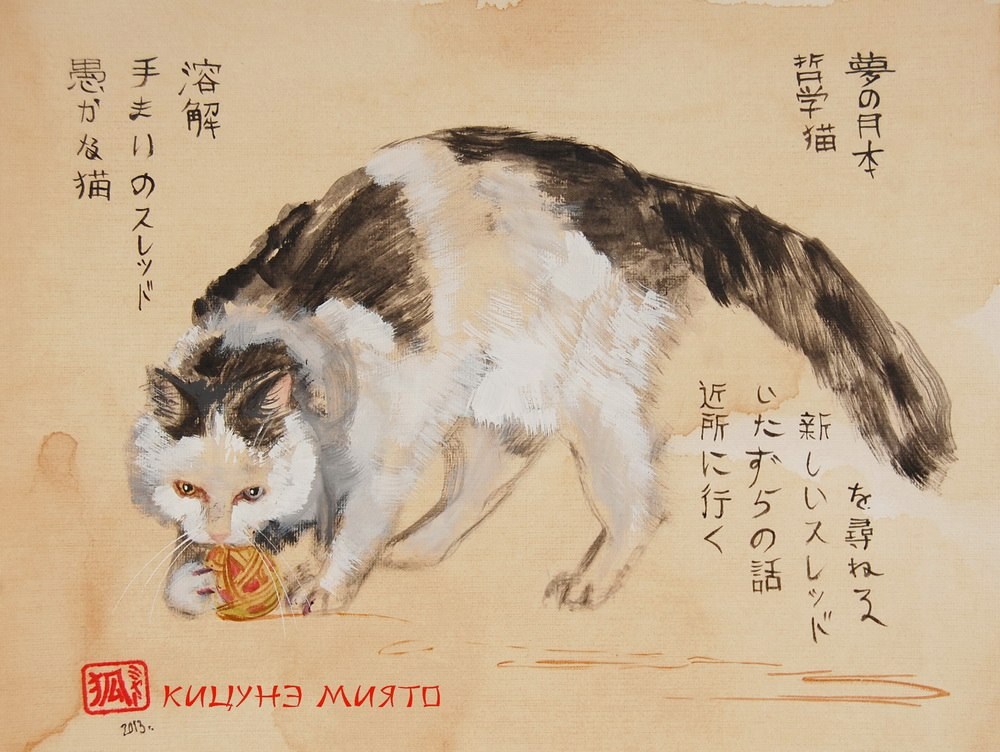 夢の月本
哲学猫
溶解
手まりのスレッド
愚かな猫
を尋ねる
新しいスレッド
いたずらの話
近所に行く
狐
КИЦУНЭ МИЯТО
2013 г.